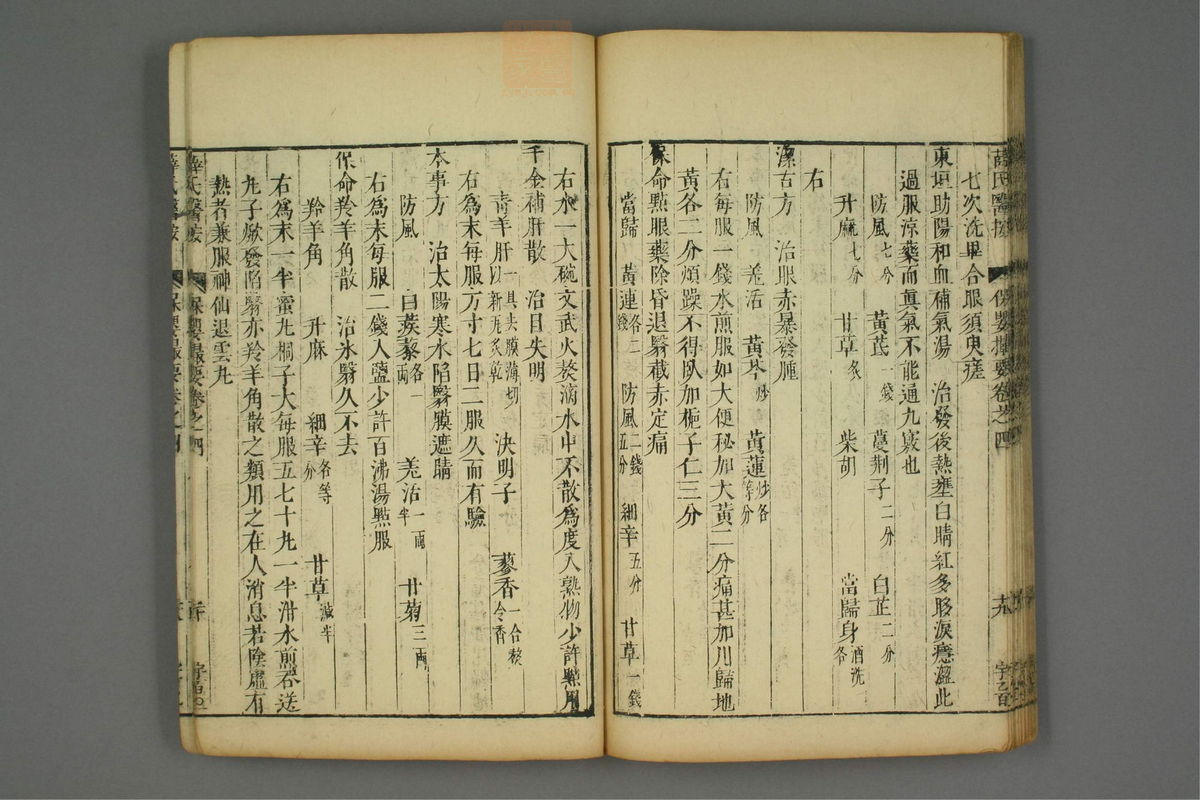 薛氏醫按 保嬰撮要卷之四
七次洗畢合眼須臾瘥
東垣助陽和血補氣湯 治發後熱壅白睛紅多眵淚癮澀此
過服涼藥而真氣不能通九竅也
防風七分 黃芪一錢 蔓荆子二分 白芷二分
升麻七分 甘草炙 柴胡 當歸身酒洗各
右
潔古方 治眼赤暴發腫
防風 羌活 黃芩炒 黃蓮炒各等分
右每服一錢水煎服如大便秘加大黃二分痛甚加川歸地
黃各二分煩躁不得臥加梔子仁三分
保命點眼藥除昏退翳截赤定痛
當歸 黃連各二錢 防風二錢五分 細辛五分 甘草一錢
右水一大碗文武火熬滴水中不散為度入熟物少許點用
千金補肝散 治目失明
靑羊肝一具去膜薄切以新瓦炙乾 決明子 蓼香一合熬令香
右為末每服方寸七日二服久而有驗
本事方 治太陽寒水陷翳膜遮睛
防風 白蒺藜各一兩 羌活一兩半 甘菊三兩
右為末每服二錢入鹽少許百沸湯點服
保命羚羊角散 治氷翳久不去
羚羊角 升麻 細辛各等分 甘草減半
右為末一半蜜九桐子大每服五七十九一半泔水煎吞送
九子焮發陷翳亦羚羊角散之類用之在人消息若陰虛有
熱者兼服神仙退雲九
薛氏醫按 保嬰撮要卷之四